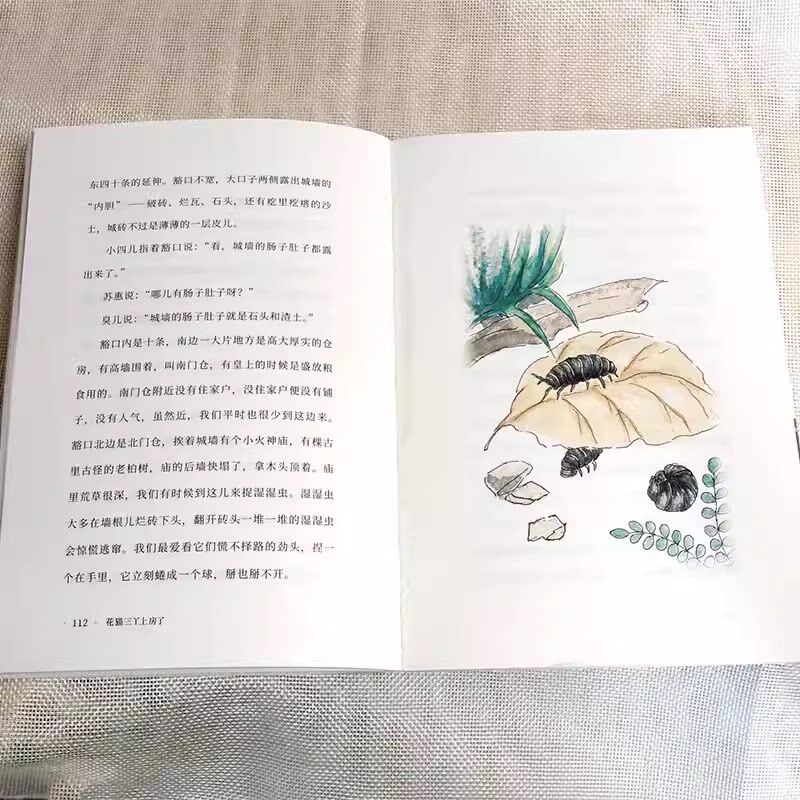 东四十条的延伸。豁口不宽，大口子两侧露出城墙的
“内胆”——破砖、烂瓦、石头，还有疙里疙瘩的沙
土，城砖不过是薄薄的一层皮儿。
小四儿指着豁口说：“看，城墙的肠子肚子都露
出来了。”
苏惠说：“哪儿有肠子肚子呀？”
臭儿说：“城墙的肠子肚子就是石头和渣土。”
豁口内是十条，南边一大片地方是高大厚实的仓
房，有高墙围着，叫南门仓，有皇上的时候是盛放粮
食用的。南门仓附近没有住家户，没住家户便没有铺
子，没有人气，虽然近，我们平时也很少到这边来。
豁口北边是北门仓，挨着城墙有个小火神庙，有棵古
里古怪的老柏树，庙的后墙快塌了，拿木头顶着。庙
里荒草很深，我们有时候到这儿来捉湿湿虫。湿湿虫
大多在墙根儿烂砖下头，翻开砖头一堆一堆的湿湿虫
会惊慌逃窜。我们最爱看它们慌不择路的劲头，捏一
个在手里，它立刻蜷成一个球，掰也掰不开。
· 112 · 花猫三丫上房了